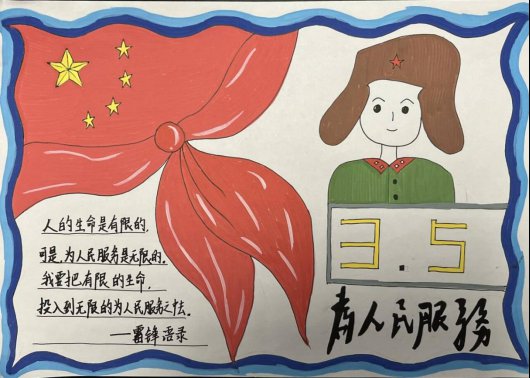 人的生命是有限的,
可是,为人民服务是无限的,
我要把有限的生命,
投入到无限的为人民服务之中去。
——雷锋语录
3.5
为人民服務